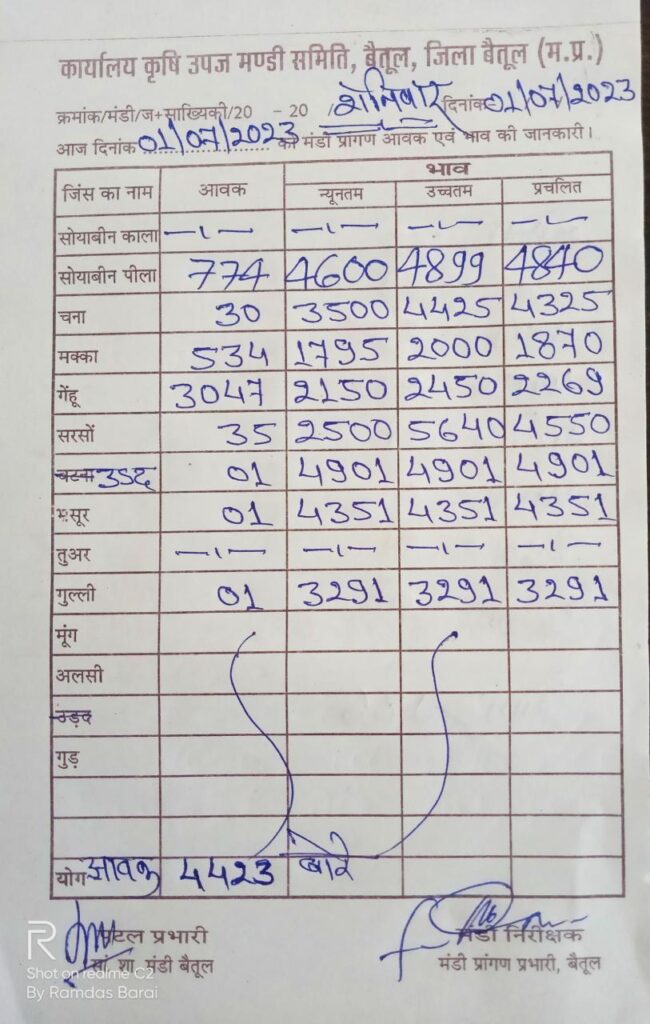 कार्यालय कृषि उपज मण्डी समिति, बैतूल, जिला बैतूल (म.प्र.)
क्रमांक/मंडी/ज+साख्यिकी/20 - 20 / शनिवार दिनांक 01/07/2023
आज दिनांक 01/07/2023 को मंडी प्रांगण आवक एवं भाव की जानकारी।
जिंस का नाम आवक भाव
न्यूनतम उच्चतम प्रचलित
सोयाबीन काला —ı— —ı— —ı— —ı—
सोयाबीन पीला 774 4600 4899 4840
चना 30 3500 4425 4325
मक्का 534 1795 2000 1870
गेंहू 3047 2150 2450 2269
सरसों 35 2500 5640 4550
उड़द 01 4901 4901 4901
मसूर 01 4351 4351 4351
तुअर —ı— —ı— —ı— —ı—
गुल्ली 01 3291 3291 3291
मूंग
अलसी
उड़द
गुड़
योग आवक 4423 बोरे
पटल प्रभारी मंडी निरीक्षक
सां. शा. मंडी बैतूल मंडी प्रांगण प्रभारी, बैतूल
R
Shot on realme C2
By Ramdas Barai